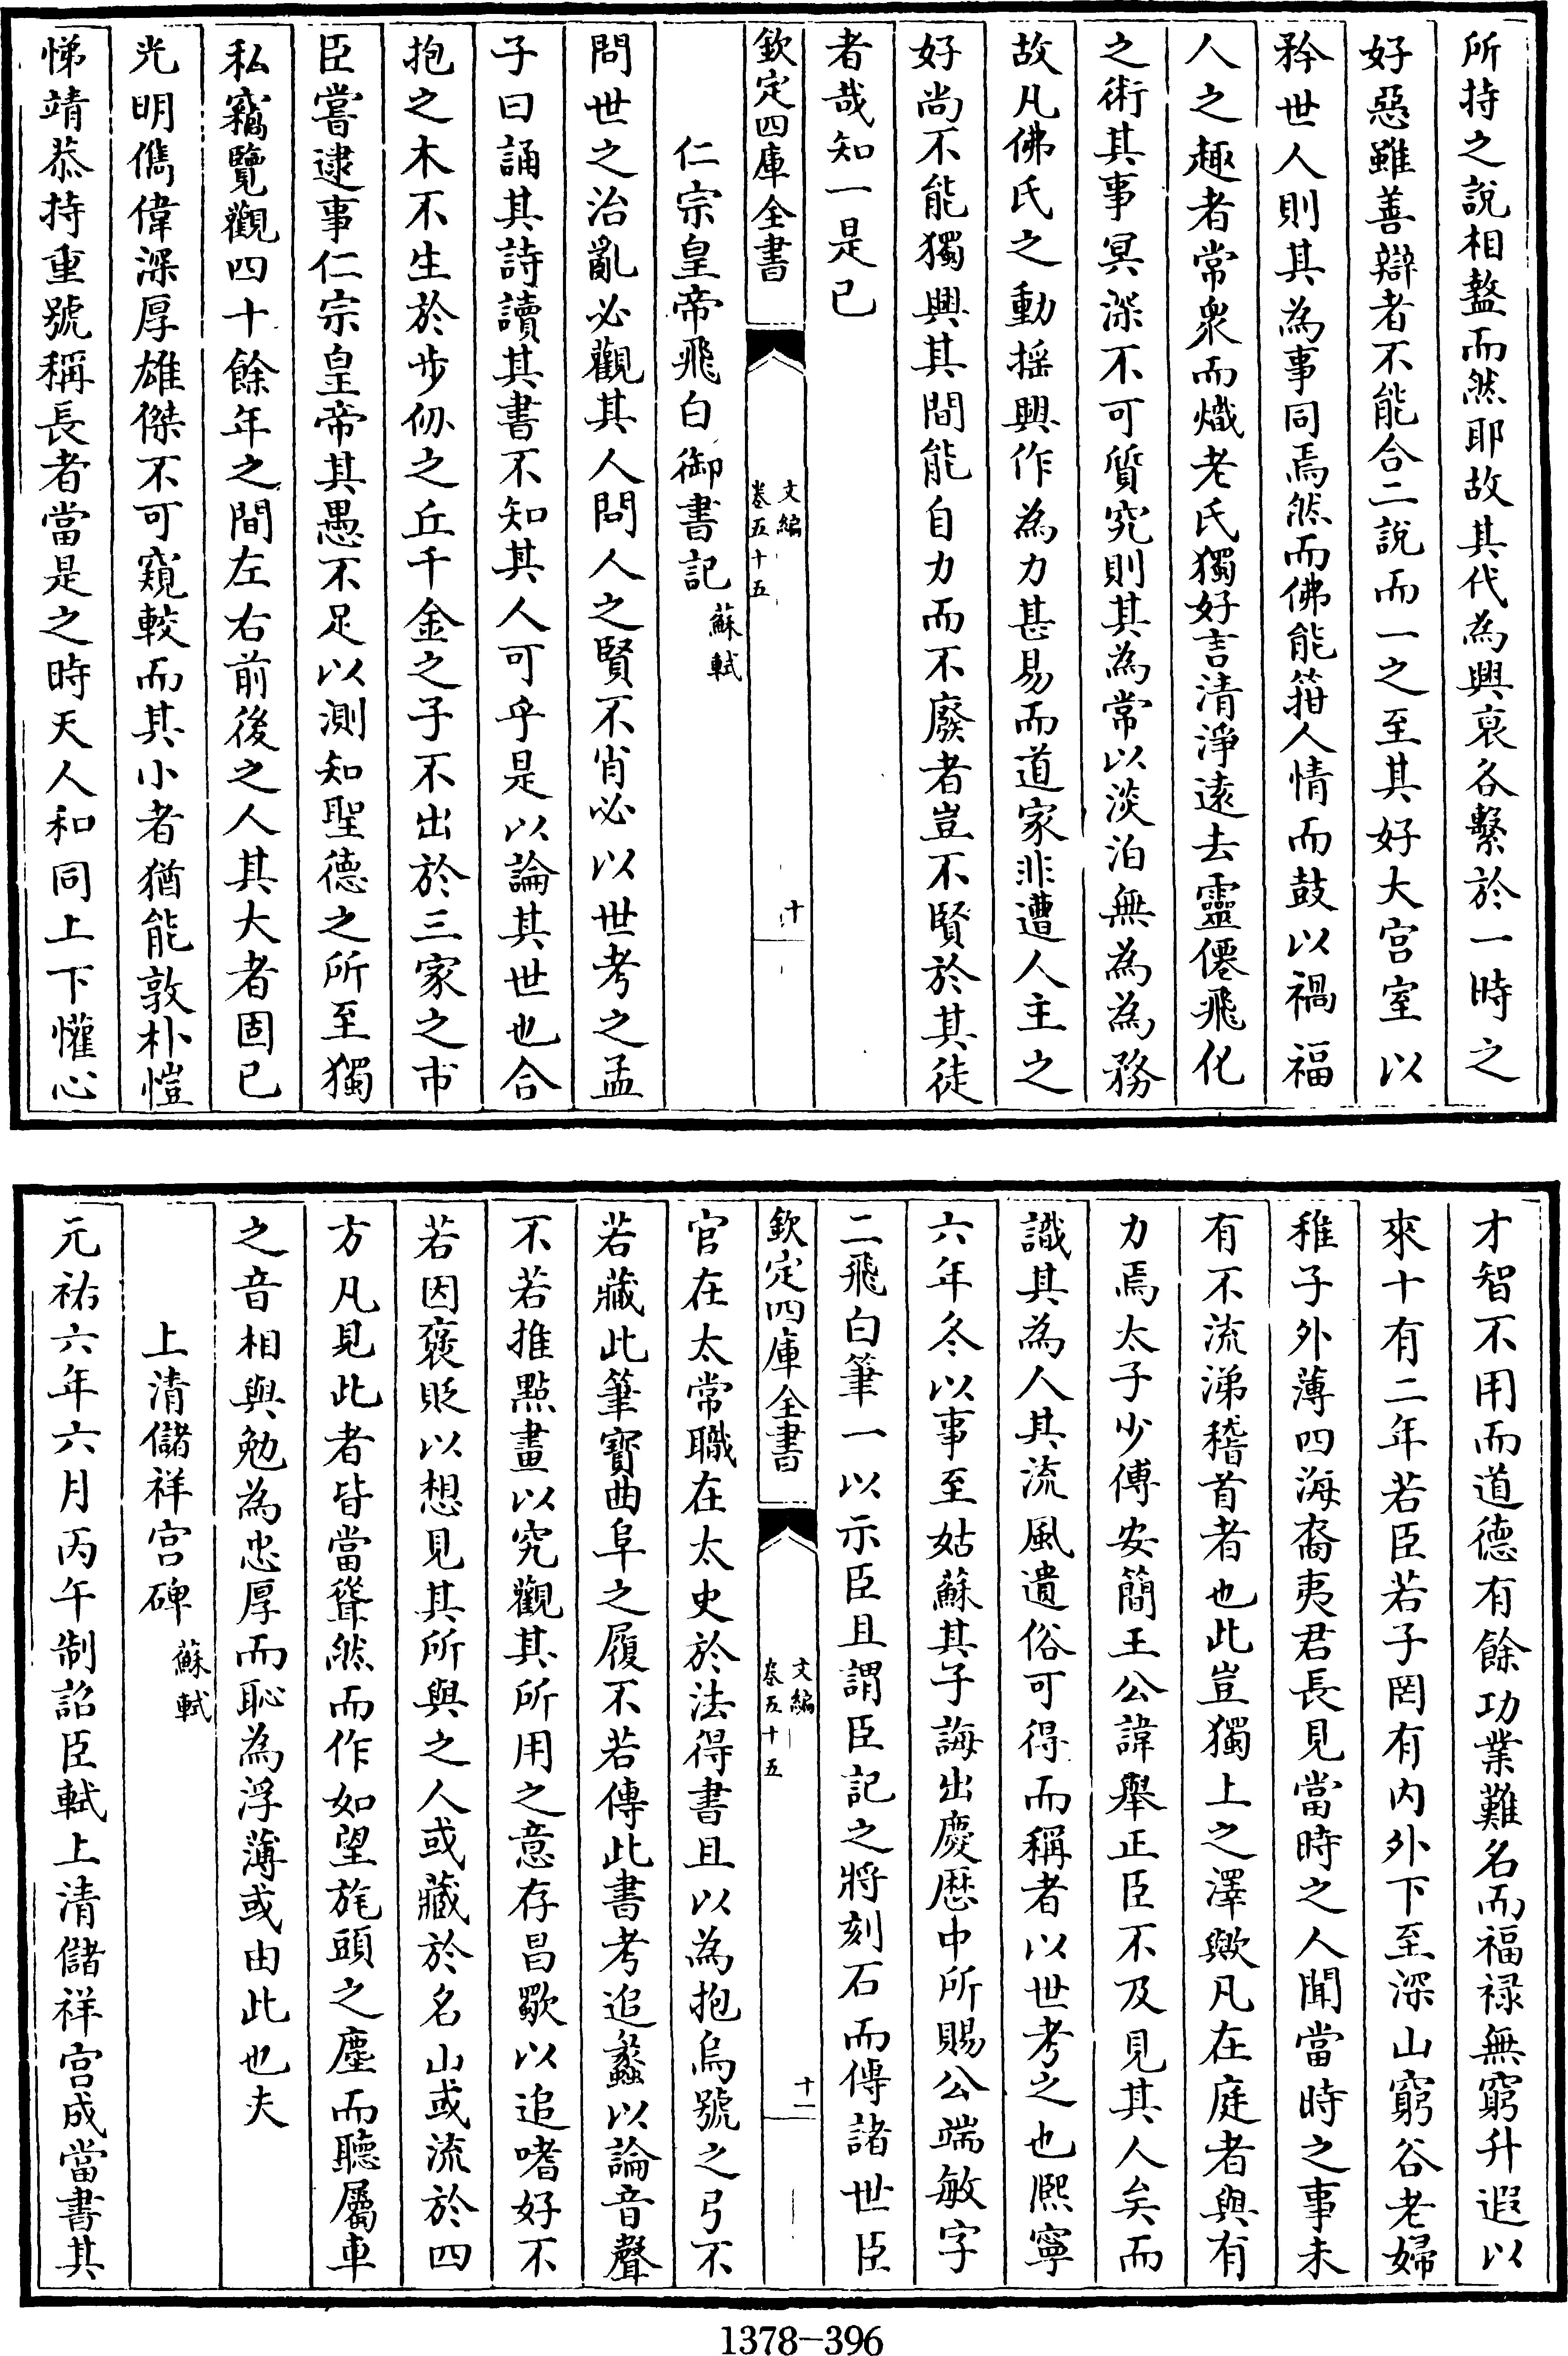 所持之說相盭而然耶故其代為興衰各繫於一時之
好惡雖善辯者不能合二說而一之至其好大宫室以
矜世人則其為事同焉然而佛能箝人情而鼓以禍福
人之趣者常衆而熾老氏獨好言清淨逺去靈僊飛化
之術其事冥深不可質究則其為常以淡泊無為為務
故凡佛氏之動揺興作為力甚易而道家非遭人主之
好尚不能獨興其間能自力而不廢者豈不賢於其徒
者哉知一是已
欽定四庫全書
文編
卷五十五
十
仁宗皇帝飛白御書記蘇軾
問世之治亂必觀其人問人之賢不肖必以世考之孟
子曰誦其詩讀其書不知其人可乎是以論其世也合
抱之木不生於步仞之丘千金之子不出於三家之市
臣嘗逮事仁宗皇帝其愚不足以測知聖德之所至獨
私竊覽觀四十餘年之間左右前後之人其大者固已
光明儁偉深厚雄傑不可窺較而其小者猶能敦朴愷
悌靖恭持重號稱長者當是之時天人和同上下懽心
才智不用而道德有餘功業難名而福禄無窮升遐以
來十有二年若臣若子罔有内外下至深山窮谷老婦
稚子外薄四海裔夷君長見當時之人聞當時之事未
有不流涕稽首者也此豈獨上之澤歟凡在庭者與有
力焉太子少傅安簡王公諱舉正臣不及見其人矣而
識其為人其流風遺俗可得而稱者以世考之也熙寧
六年冬以事至姑蘇其子誨出慶厯中所賜公端敏字
二飛白筆一以示臣且謂臣記之將刻石而傳諸世臣
欽定四庫全書
文編
卷五十五
十一
官在太常職在太史於法得書且以為抱烏號之弓不
若藏此筆寳曲阜之履不若傳此書考追蠡以論音聲
不若推點畫以究觀其所用之意存昌歜以追嗜好不
若因褒貶以想見其所與之人或藏於名山或流於四
方凡見此者皆當聳然而作如望旄頭之塵而聽屬車
之音相與勉為忠厚而恥為浮薄或由此也夫
上清儲祥宫碑蘇軾
元祐六年六月丙午制詔臣軾上清儲祥宫成當書其
1378-396